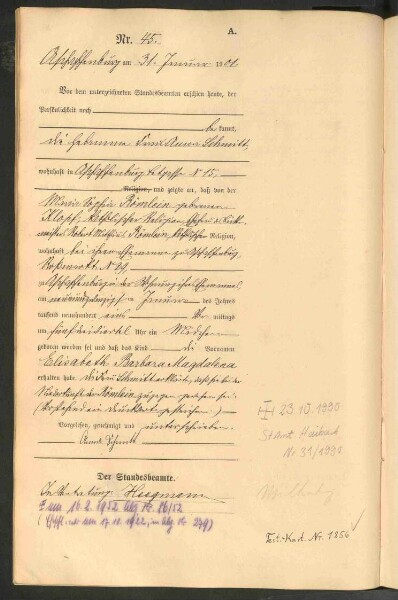 A.
Nr. 45.
Aschaffenburg am 31. Januar 1901
Vor dem unterzeichneten Standesbeamten erschien heute, der
Persönlichkeit nach
be kannt,
die Hebamme Frau Anna Schmitt,
wohnhaft in Aschaffenburg N 15
Religion, und zeigte an, daß von der
Maria Sophia Römlein geborenen
Klopf, katholischer Religion, Ehefrau des
Robert Römlein, katholischer Religion,
wohnhaft bei ihrem Ehemanne zu Aschaffenburg,
Roßmarkt N 29,
zu Aschaffenburg in der Wohnung ihres Ehemannes
am neunundzwanzigsten Januar des Jahres
tausend neunhundert eins Vor mittags
um Uhr ein Mädchen
geboren worden sei und daß das Kind die Vornamen
Elisabeth Barbara Magdalena
erhalten habe. Die Frau Schmitt erklärte, daß sie bei der
Niederkunft der Römlein zugegen gewesen sei.
(Vorstehend ein Druckwort gestrichen)
Vorgelesen, genehmigt und unterschrieben
Anna Schmitt
Der Standesbeamte.
In Vertretung:
am 16. 2. 1952 86/52
am 17. 11. 1922, in 279)
23.10.1990
StAmt
Nr 31/1990
Test.-Kart. Nr. 1856